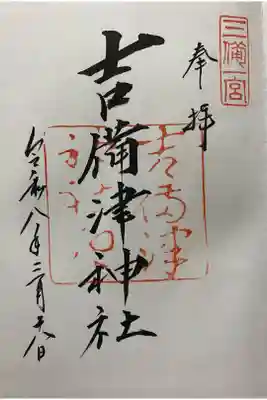 三備一宮
奉拝
吉備津神社
吉備津神社
令和八年二月十八日